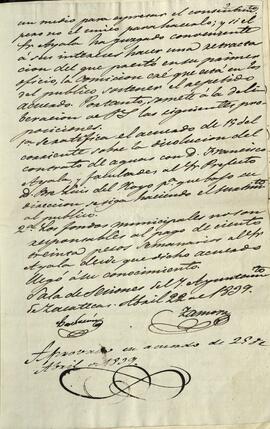 un medio para espresar el consentimto
pero no el unico para hacerlo; y si el
Sr. Ayala ha juzgado conveniente
á sus intereses hacer una retracta
cion del que prestó en su primer
oficio, la Comision cree que está en los
del publico sostener el referido
acuerdo. Por tanto, somete á la deli
beracion de VS las siguientes pro
posiciones.
1a Se ratifica el acuerdo de 15 del
corriente sobre la disolucion del
contrato de aguas con D. Francisco
Ayala, y facultades al Sr. Prefecto
D. Luis del Hoyo pa. que bajo su
direccion se siga haciendo el
al publico.
2a Los fondos municipales no son
responsables al pago de ciento
treinta pesos semanarios al Sr.
Ayala desde que dicho acuerdo
llegó á su conocimiento.
Sala de Sesiones del Y. Ayuntamto
de Zacatecas. Abril 22 de 1839.
Zamora
Aprovado en acuerdo de 23 de
Abril de 1839.